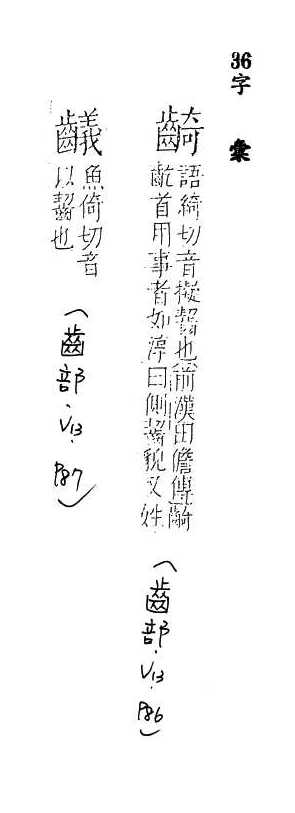 36字彙
齮
語綺切音擬齧也前漢田儋傳齮
齕首用事者如淳曰側齧貌又姓
(齒部.V13.P86)
魚倚切音
以齧也
(齒部.V13.P87)